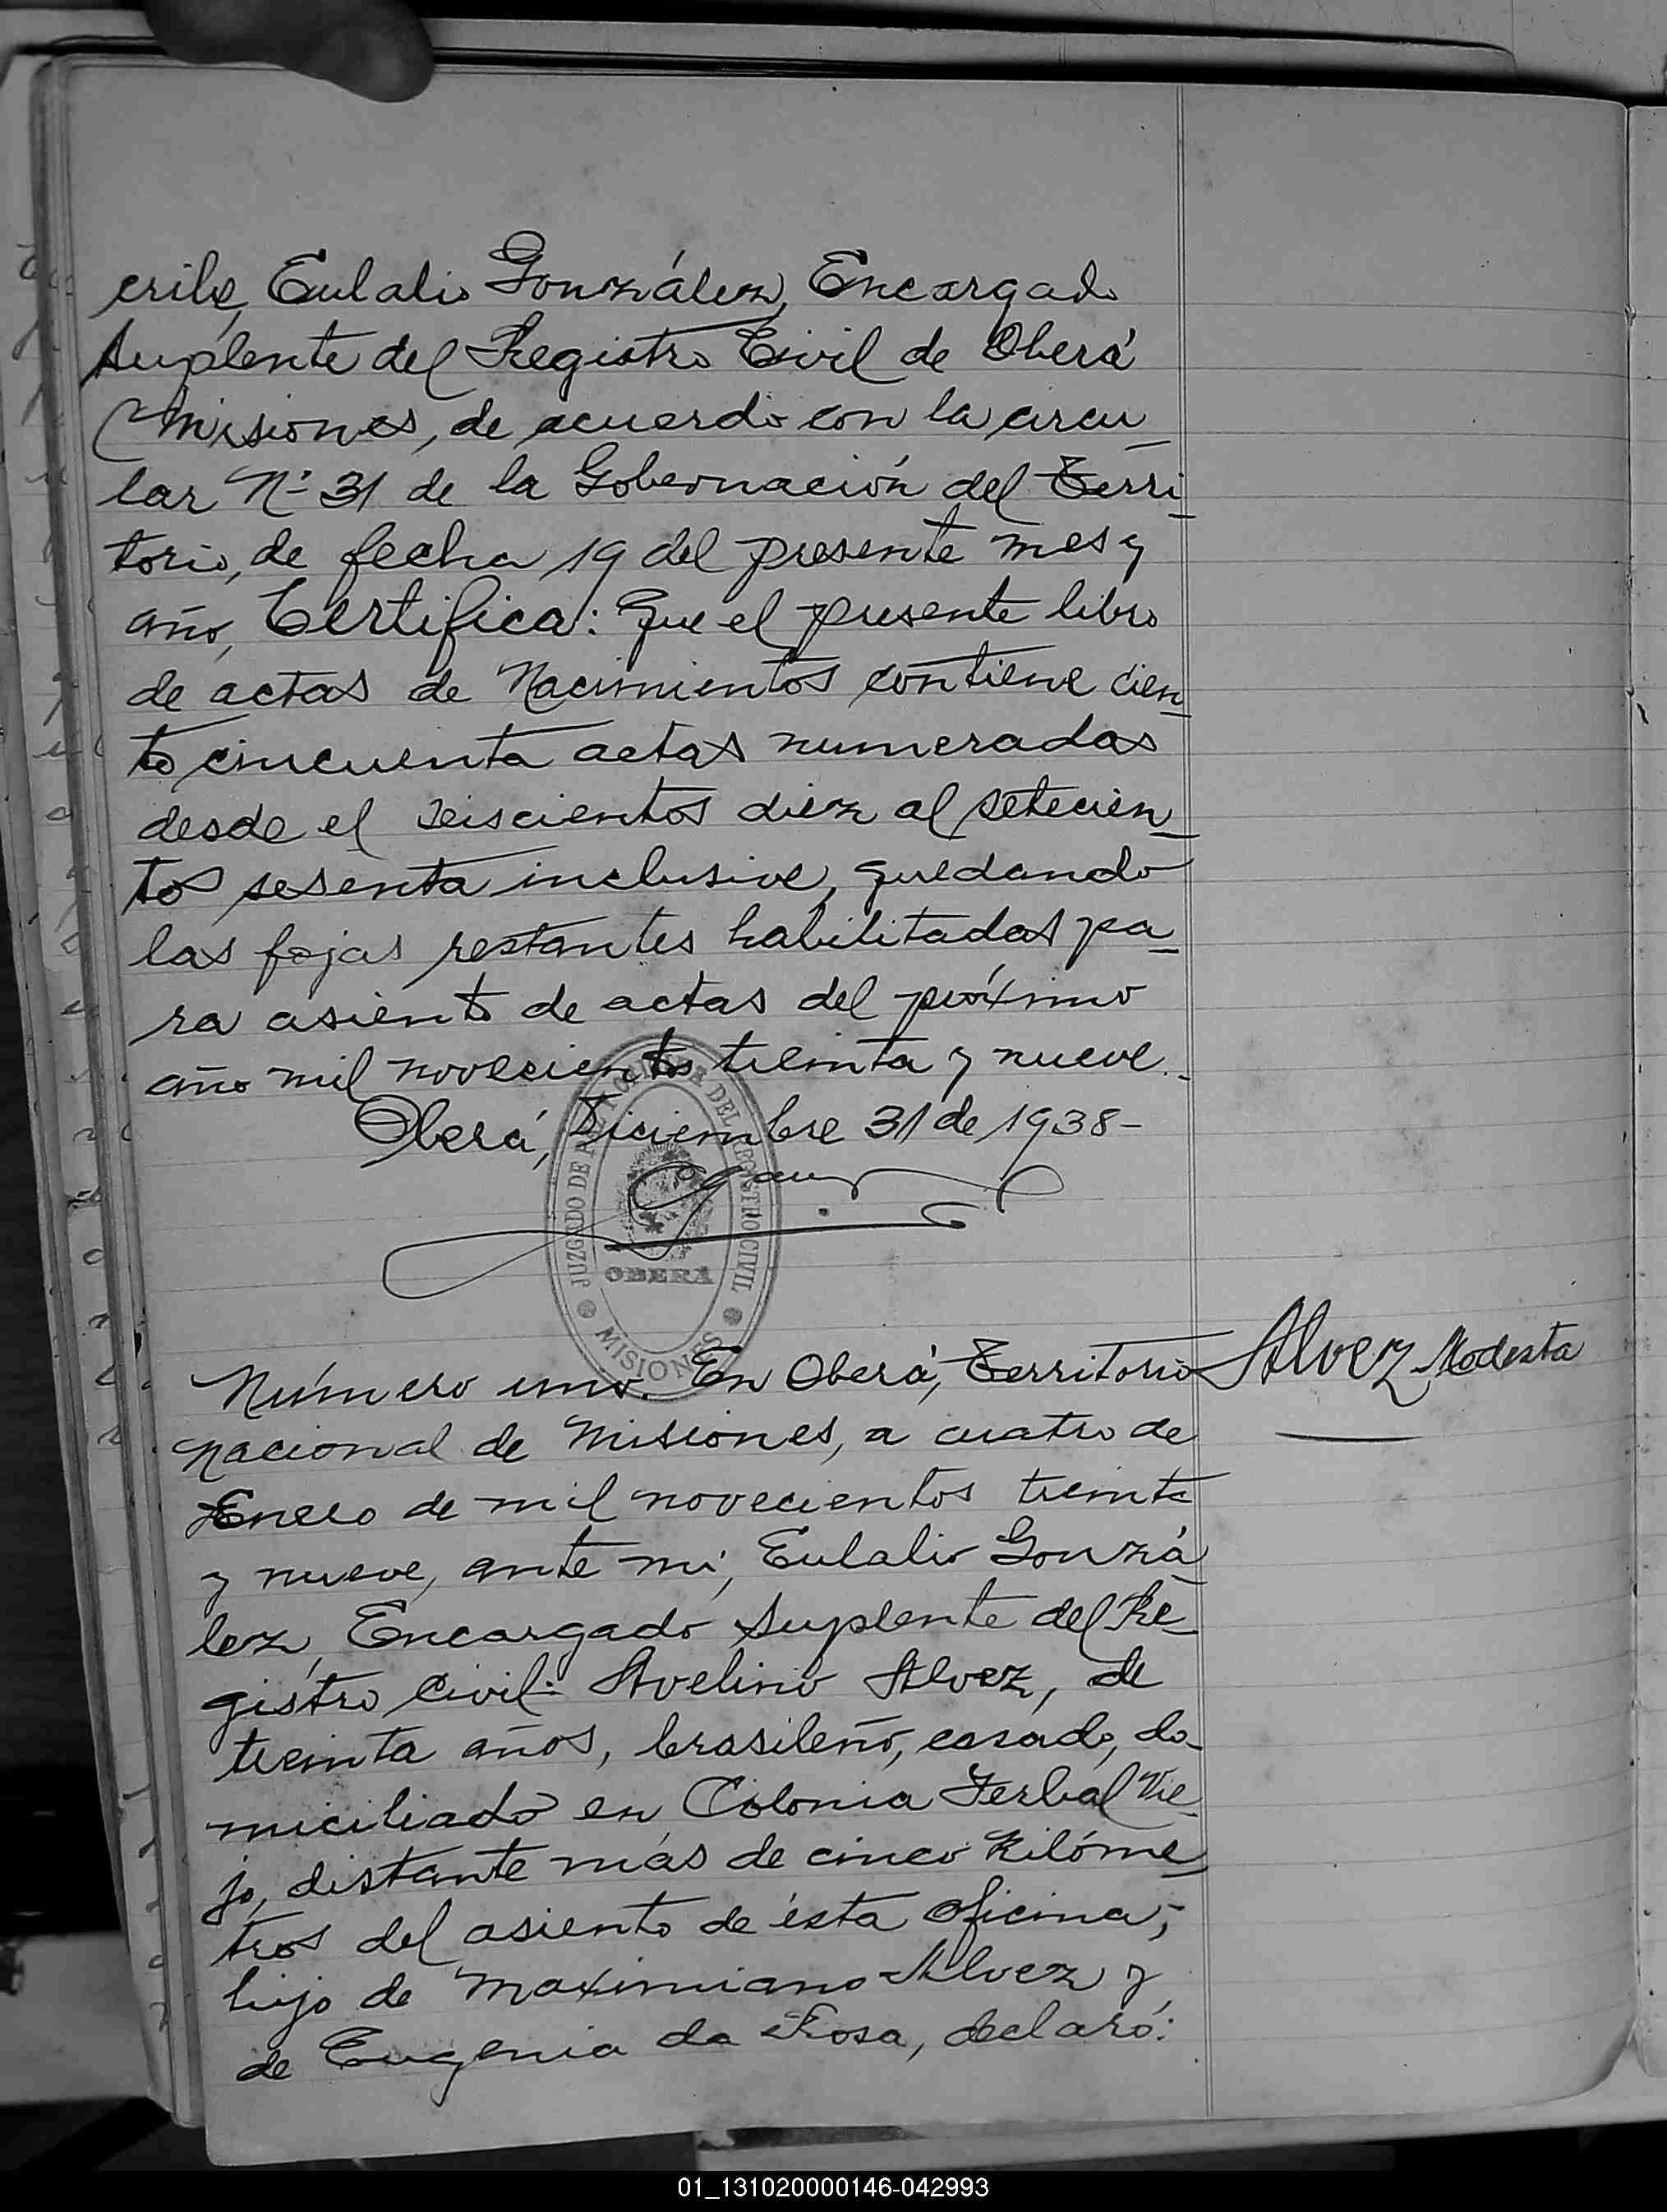 cribe, Eulalio González, Encargado
Suplente del Registro Civil de Oberá
Misiones, de acuerdo con la circu_
lar Nº 31 de la Gobernación del Terri_
torio, de fecha 19 del presente mes y
año, Certifica: Que el presente libro
de actas de Nacimientos contiene cien_
to cincuenta actas numeradas
desde el seiscientos diez al setecien_
tos sesenta inclusive, quedando
las fojas restantes habilitadas pa_
ra asiento de actas del próximo
año mil novecientos treinta y nueve._
Oberá, Diciembre 31 de 1938-
JUZGADO DE PAZ DEL REGISTRO CIVIL
OBERÁ
MISIONES
Número uno. En Oberá, Territorio
Alvez Modesta
Nacional de Misiones, a cuatro de
Enero de mil novecientos treinta
y nueve, ante mí, Eulalio Gonzá_
lez, Encargado Suplente del Re_
gistro Civil: Avelino Alvez, de
treinta años, brasileño, casado, do_
miciliado en Colonia Yerbal Vie_
jo, distante más de cinco Kilóme_
tros del asiento de ésta oficina;
hijo de Maximiano Alvez y
de Eugenia da Rosa, declaró:
01_131020000146-042993